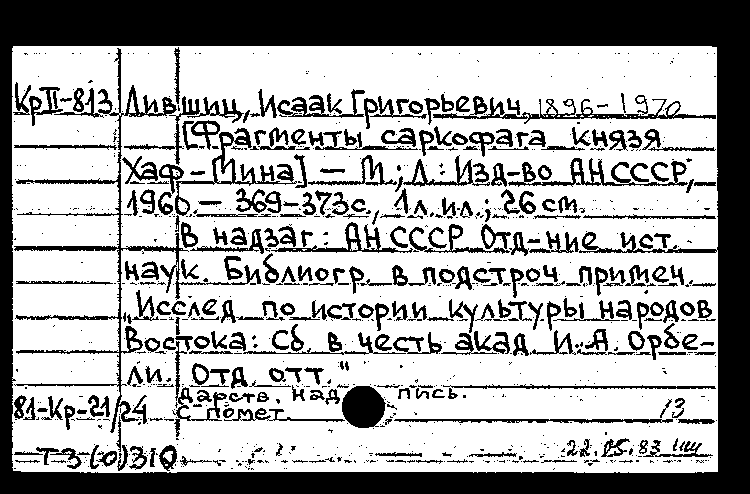 КрII-813 Лившиц, Исаак Григорьевич, 1896-1970
[Фрагменты саркофага князя
Хаф-Мина] — М.; Л.: Изд-во АН СССР,
1960. — 369-373 с., 1 л. ил.; 26 cm.
В надзаг.: АН СССР Отд-ние ист.
наук. Библиогр. в подстроч примеч.
„Исслед по истории культуры народов
Востока: Сб. в честь акад. И. А. Орбе-
ли. Отд. отт."
Дарств. надпись.
81-Кр-21/24 С помет. 13
ТЗ(0)310 22.05.83